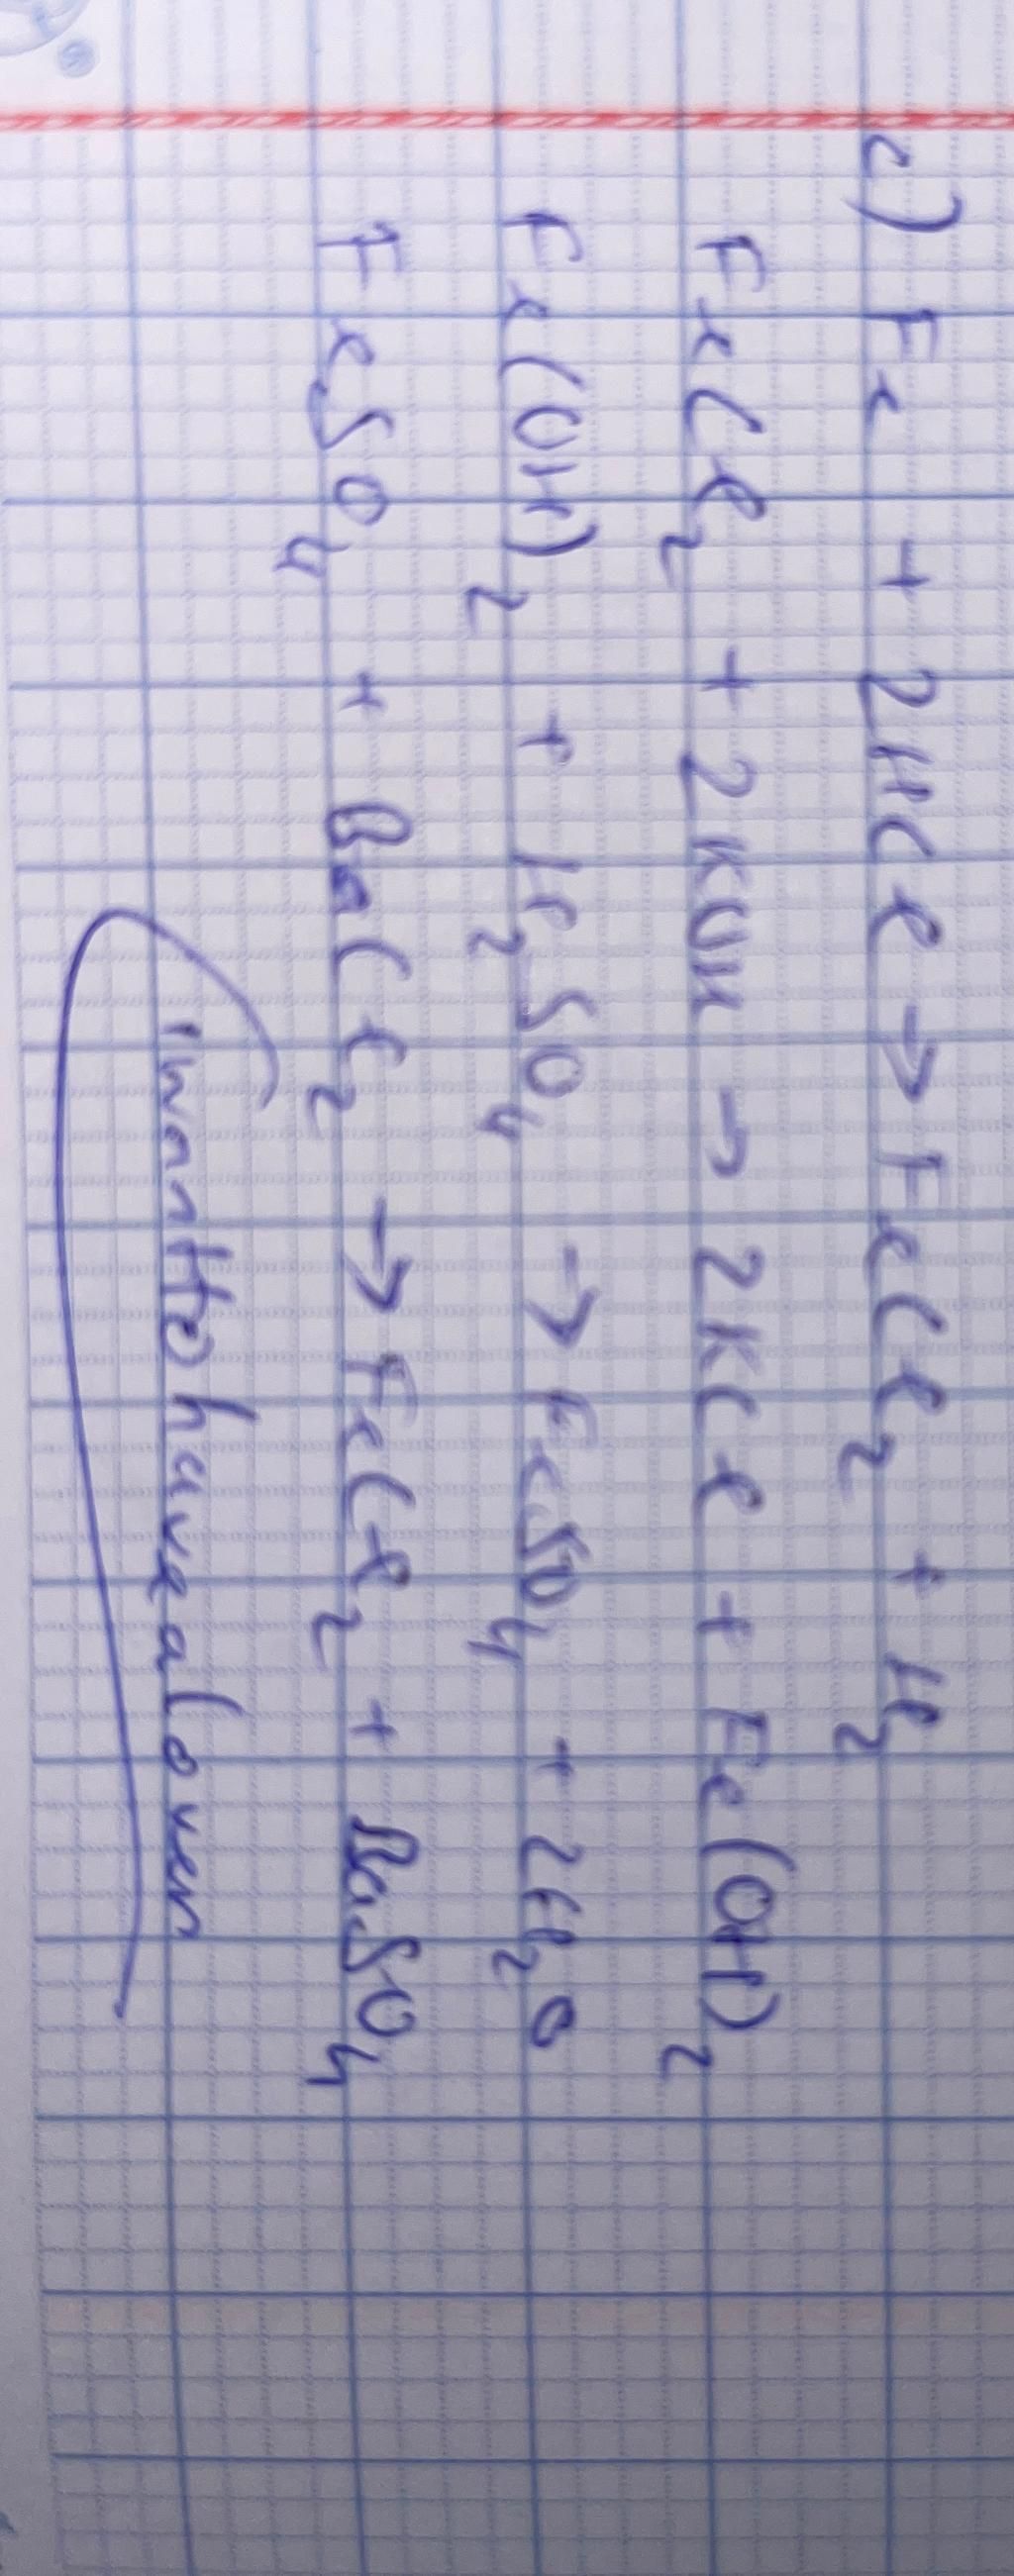 c) Fe + 2HCl → FeCl₂ + H₂
FeCl₂ + 2KOH → 2KCl + Fe(OH)₂
Fe(OH)₂ + H₂SO₄ → FeSO₄ + 2H₂O
FeSO₄ + BaCl₂ → FeCl₂ + BaSO₄
I want to have a lover